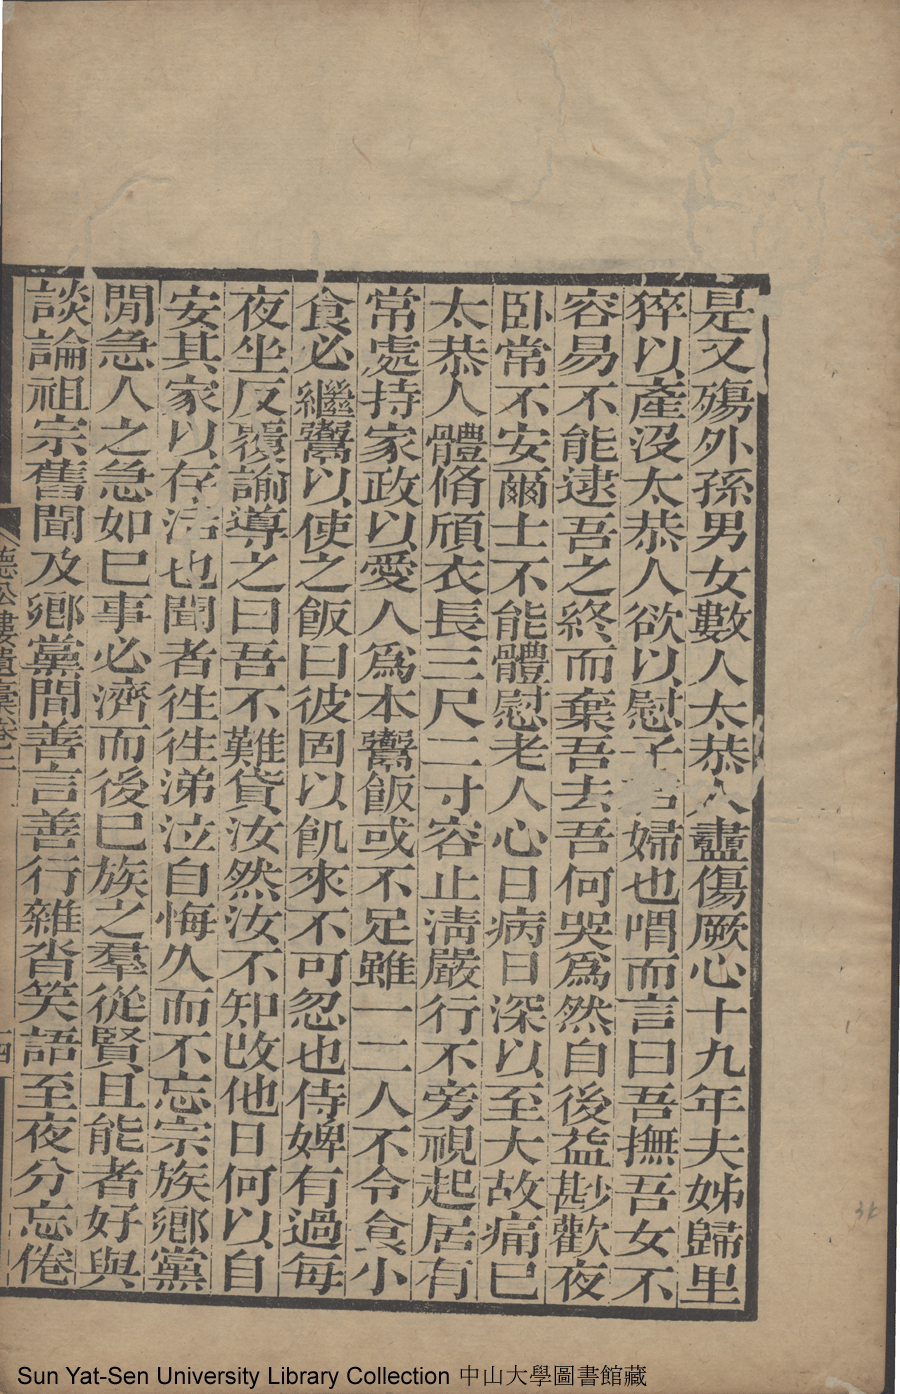 是又殤外孫男女數人太恭人盡傷厥心十九年夫姊歸里
猝以產沒太恭人欲以慰子婦也喟而言曰吾撫吾女不
容易不能逮吾之終而棄吾去吾何哭爲然自後益尠歡夜
卧常不安爾士不能體慰老人心日病日深以至大故痛已
太恭人體脩頎衣長三尺二寸容止淸嚴行不旁視起居有
常處持家政以愛人爲本鬻飯或不足雖一二人不令食小
食必繼鬻以使之飯曰彼固以飢來不可忍也侍婢有過每
夜坐反覆諭導之曰吾不難貸汝然汝不知改他日何以自
安其家以存活也聞者徃徃涕泣自悔久而不忘宗族鄉黨
閒急人之急如巳事必濟而後巳族之羣從賢且能者好與
談論祖宗舊聞及鄉黨間善言善行雜沓笑語至夜分忘倦
德公樓遺稾卷二
四
Sun Yat-Sen University Library Collection 中山大學圖書館藏